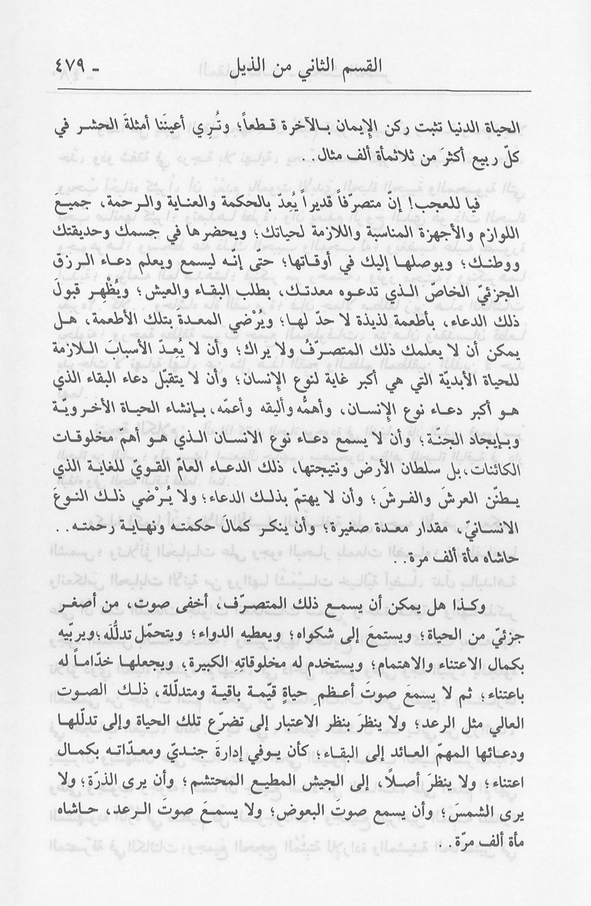 القسم الثاني من الذيل ـ ٤٧٩
الحياة الدنيا تثبت ركن الإيمان بالآخرة قطعاً؛ وتُرِي أعيننا أمثلةَ الحشر في
كلّ ربيع أكثرَ من ثلاثمأة ألف مثال. .
فيا للعجب! إن متصرّفاً قديراً يُعدّ بالحكمة والعناية والرحمة، جميعَ
اللوازم والأجهزة المناسبة واللازمة لحياتك؛ ويحضرها في جسمك وحديقتك
ووطنك؛ ويوصلها إليك في أوقاتها؛ حتّى إنّه ليسمع ويعلم دعاء الرزق
الجزئيّ الخاصّ الذي تدعوه معدتك، بطلب البقاء والعيش؛ ويُظْهِر قبولَ
ذلك الدعاء، بأطعمة لذيذة لا حدّ لها؛ ويُرْضي المعدة بتلك الأطعمة، هل
يمكن أن لا يعلمك ذلك المتصرّفُ ولا يراك؛ وأن لا يُعدّ الأسبابَ اللازمة
للحياة الأبديّة التي هي أكبر غاية لنوع الإنسان؛ وأن لا يتقبّل دعاء البقاء الذي
هو أكبر دعاء نوع الإنسان، وأهمُّه وأليقه وأعمّه، بإنشاء الحياة الأخرويّة
وبإيجاد الجنّة؛ وأن لا يسمع دعاء نوع الانسان الذي هو أهمّ مخلوقات
الكائنات، بل سلطان الأرض ونتيجتها، ذلك الدعاء العامّ القويّ للغاية الذي
يطنّن العرشَ والفرشَ؛ وأن لا يهتمّ بذلك الدعاء؛ ولا يُرْضي ذلك النوعَ
الانسانيّ، مقدار معدة صغيرة؛ وأن ينكر كمالَ حكمته ونهاية رحمته. .
حاشاه مأة ألف مرة. .
وكذا هل يمكن أن يسمع ذلك المتصرّف، أخفى صوت، من أصغر
جزئيّ من الحياة؛ ويستمعَ إلى شكواه؛ ويعطيه الدواء؛ ويتحمّل تدلُّلَه؛ ويربّيه
بكمال الاعتناء والاهتمام؛ ويستخدم له مخلوقاتِهِ الكبيرة، ويجعلها خدّاماً له
باعتناء؛ ثم لا يسمعَ صوتَ أعظمِ حياةٍ قيّمة باقية ومتدلّلة، ذلك الصوت
العالي مثل الرعد؛ ولا ينظرَ بنظر الاعتبار إلى تضرّع تلك الحياة وإلى تدلّلها
ودعائها المهمّ العائد إلى البقاء؛ كأن يوفي إدارةَ جنديّ ومعدّاته بكمال
اعتناء؛ ولا ينظرَ أصلاً، إلى الجيش المطيع المحتشم؛ وأن يرى الذرّة؛ ولا
يرى الشمسَ؛ وأن يسمع صوتَ البعوض؛ ولا يسمعَ صوتَ الرعد، حاشاه
مأة ألف مرّة. .